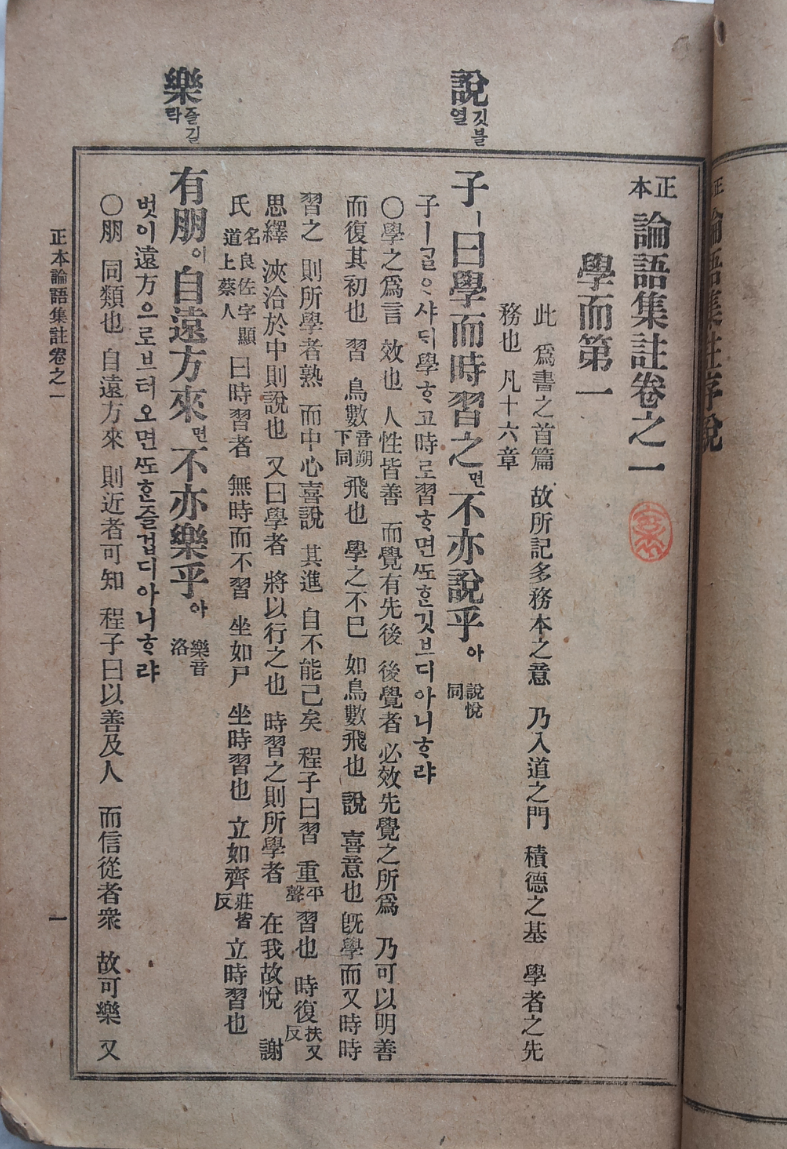 正本 論語集註序說
正本 論語集註卷之一
學而第一
此 爲書之首篇 故所記多務本之意 乃入道之門 積德之基 學者之先
務也 凡十六章
說 깃블 열
子ㅣ曰學而時習之면不亦說乎아 說悅同
子ㅣᄀᆞᆯᄋᆞ샤ᄃᆡ學ᄒᆞ고時로習ᄒᆞ면ᄯᅩᄒᆞᆫ깃브디아니ᄒᆞ랴
〇學之爲言 效也 人性皆善 而覺有先後 後覺者 必效先覺之所爲 乃可以明善
而復其初也 習 鳥數音朔下同飛也 學之不已 如鳥數飛也 說 喜意也 旣學而又時時
習之 則所學者熟 而中心喜說 其進 自不能已矣 程子曰習 重平聲習也 時復扶又反
思繹 浹洽於中則說也 又曰學者 將以行之也 時習之則所學者 在我故悅 謝
氏名良佐字顯道上蔡人 曰時習者 無時而不習 坐如尸 坐時習也 立如齊莊皆反 立時習也
樂 즐길 락
有朋이自遠方來면不亦樂乎아 樂音洛
벗이遠方으로브터오면ᄯᅩᄒᆞᆫ즐겁디아니ᄒᆞ랴
〇朋 同類也 自遠方來 則近者可知 程子曰以善及人 而信從者衆 故可樂 又
正本論語集註卷之一
一